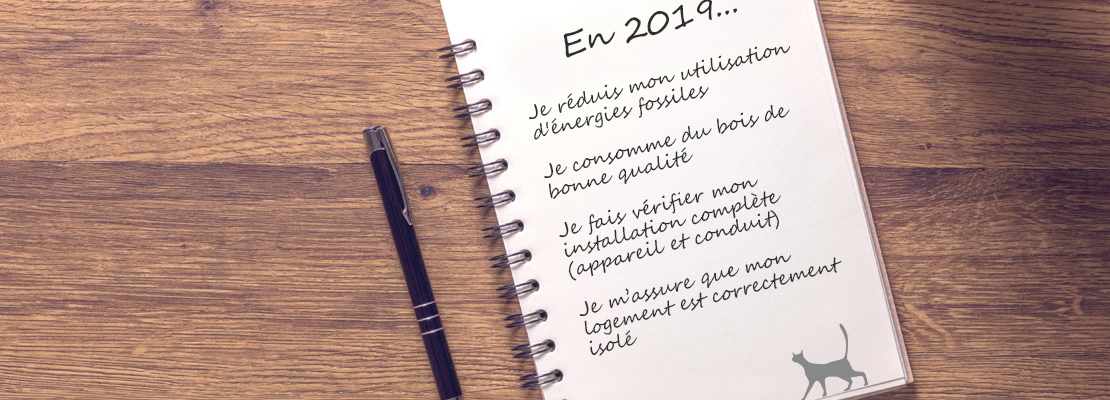 En 2019...
Je réduis mon utilisation
d'énergies fossiles
Je consomme du bois de
bonne qualité
Je fais vérifier mon
installation complète
(appareil et conduit)
Je m'assure que mon
logement est correctement
isolé